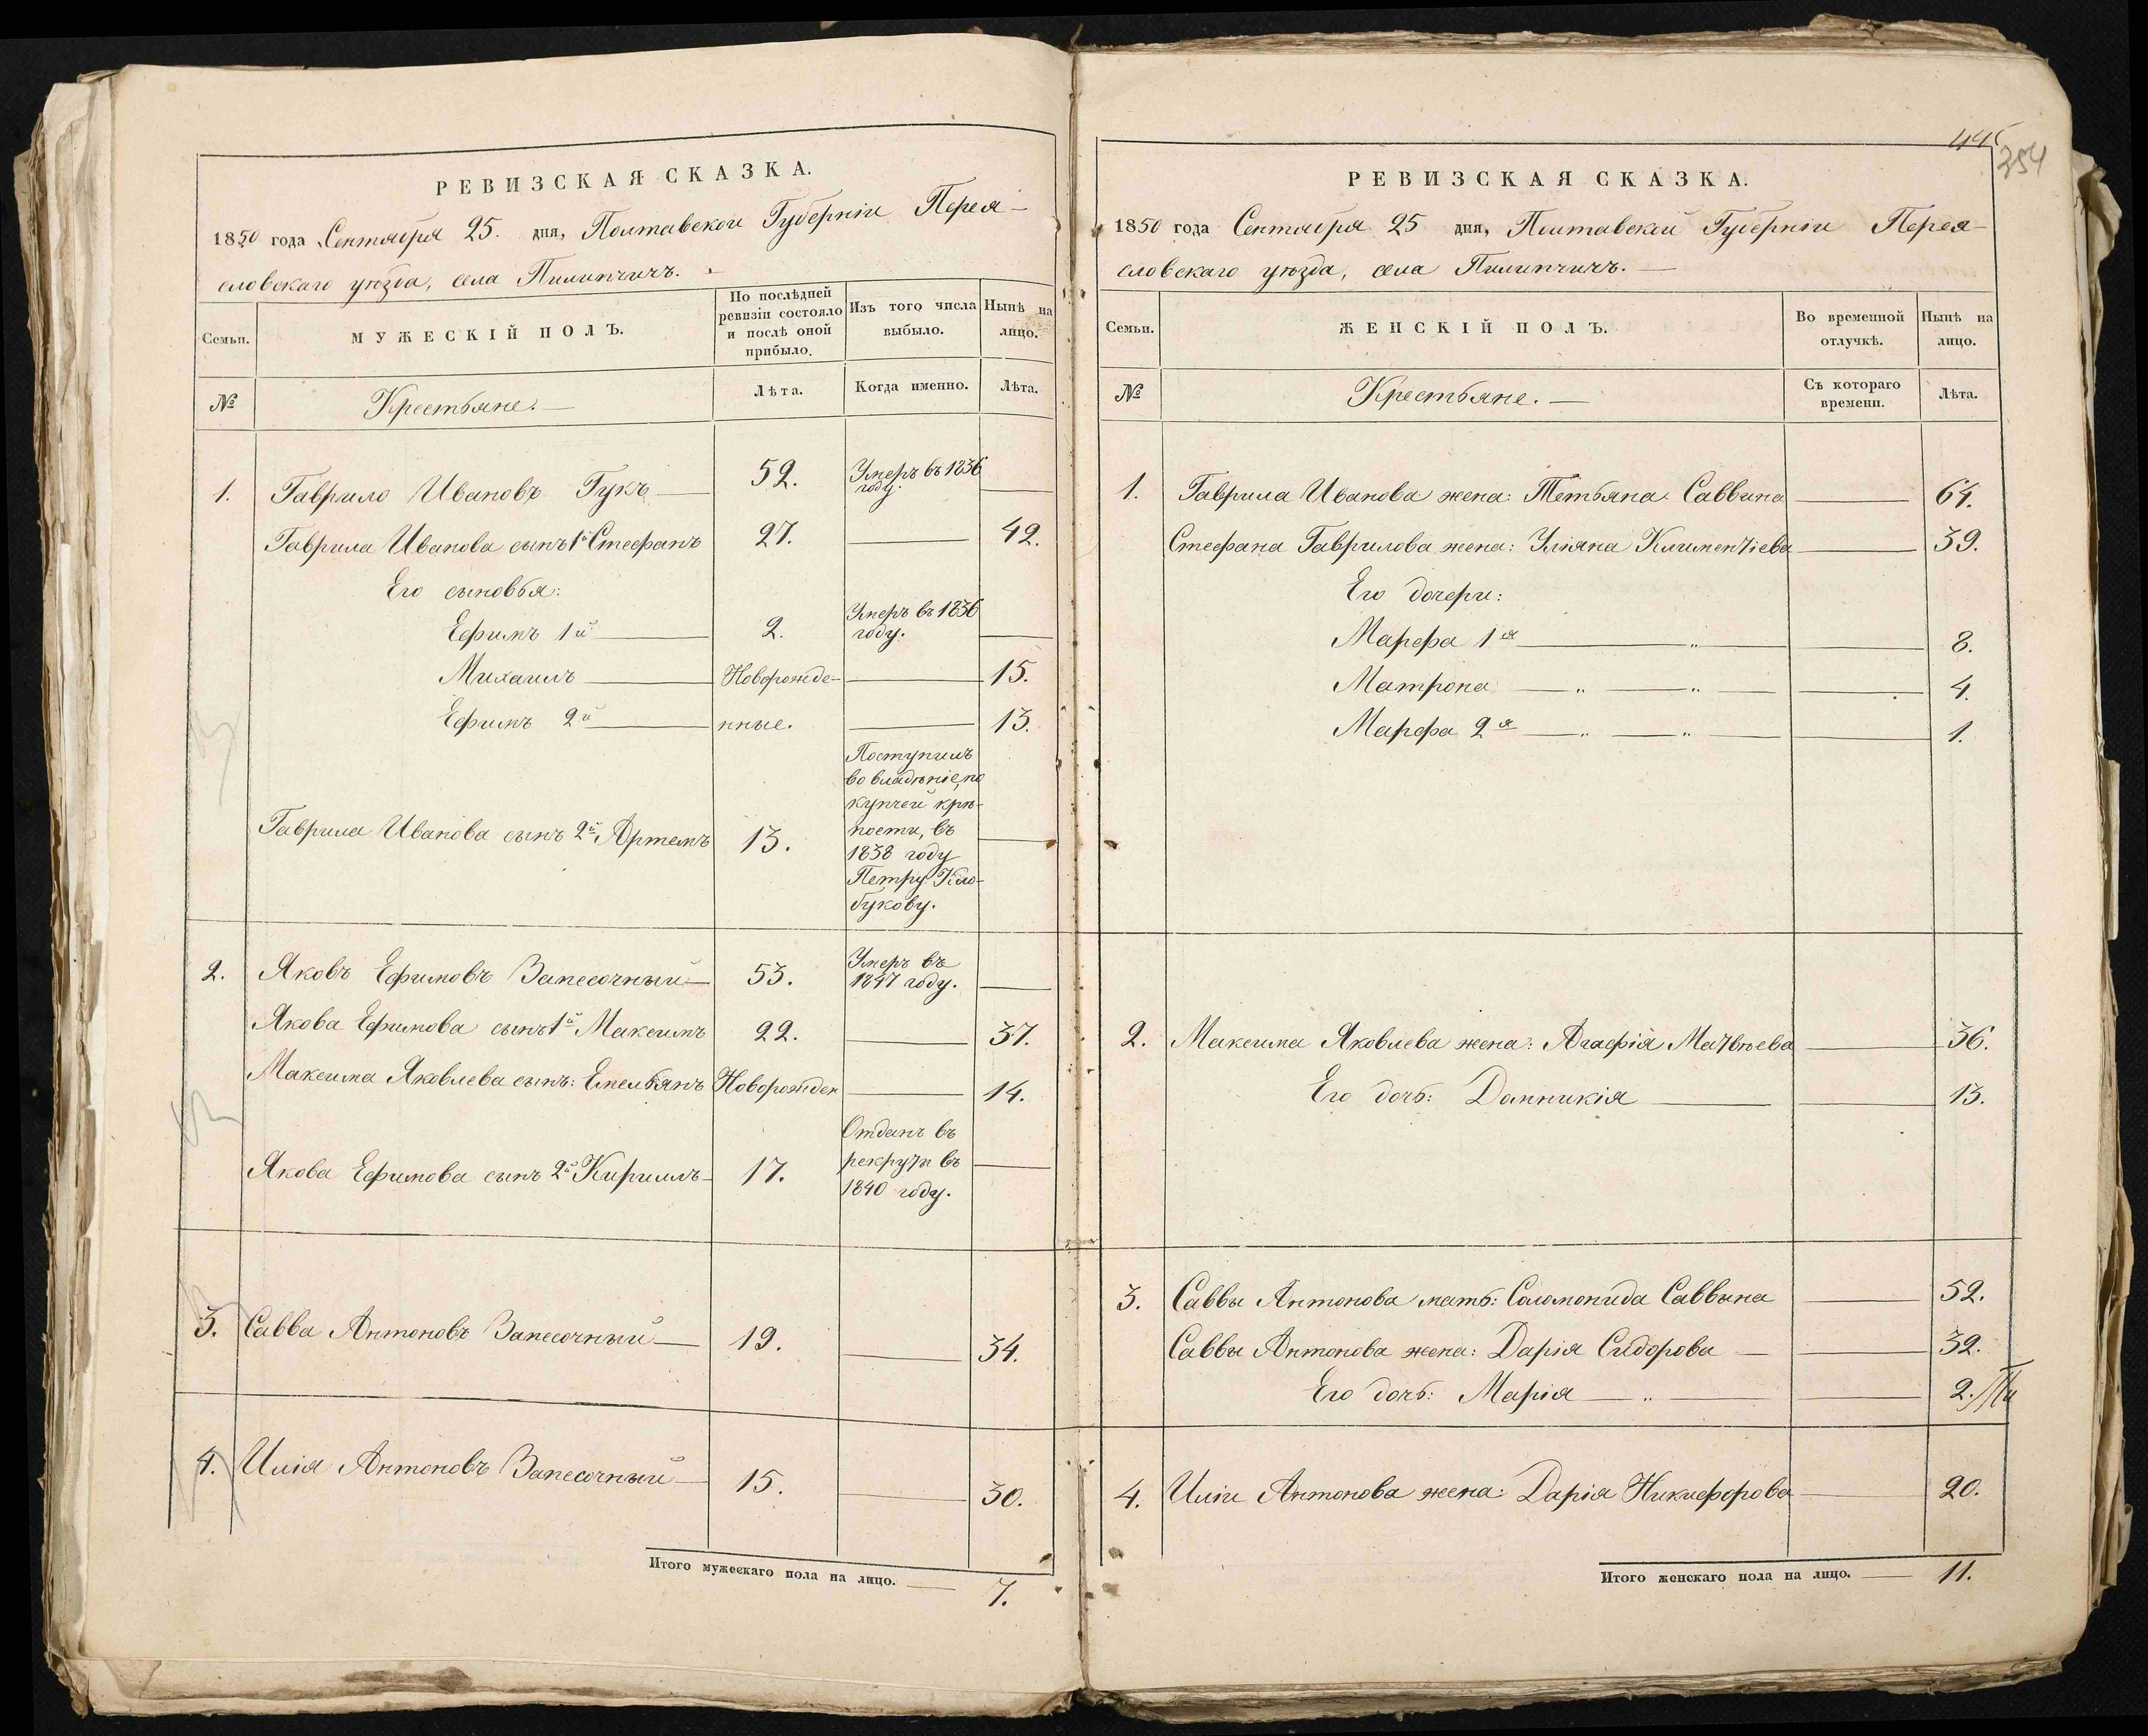 РЕВИЗСКАЯ СКАЗКА.
1850 года Сентября 25. дня, Полтавской Губерніи Перея-
словскаго уѣзда, села Пилипчичъ.
Семьи.
МУЖЕСКІЙ ПОЛЪ.
По послѣдней ревизіи состояло и послѣ оной прибыло.
Изъ того числа выбыло.
Нынѣ на лицо.
№
Крестьяне.
Лѣта.
Когда именно.
Лѣта.
1. Гаврило Ивановъ Гукъ 52. Умеръ въ 1836
году.
Гаврила Иванова сынъ 1й Стефанъ 27. 42.
Его сыновья:
Ефимъ 1й 2. Умеръ въ 1836
году.
Михаилъ Новорожде- 15.
Ефимъ 2й нные. 13.
Гаврила Иванова сынъ 2й Артемъ 13.
Поступилъ
во владѣніе, по
купчей крѣ-
пости, въ
1838 году
Петру Кло-
букову.
2. Яковъ Ефимовъ Запесочный 53. Умеръ въ
1847 году.
Якова Ефимова сынъ 1й Максимъ 22. 37.
Максима Яковлева сынъ: Емельянъ Новорожден 14.
Якова Ефимова сынъ 2й Кирилъ 17.
Отданъ въ
рекруты въ
1840 году.
3. Савва Антоновъ Запесочный 19. 34.
4. Илія Антоновъ Запесочный 15. 30.
Итого мужескаго пола на лицо. 7.
354
РЕВИЗСКАЯ СКАЗКА.
1850 года Сентября 25 дня, Полтавской Губерніи Перея-
словскаго уѣзда, села Пилипчичъ.
Семьи.
ЖЕНСКІЙ ПОЛЪ.
Во временной отлучкѣ.
Нынѣ на лицо.
№
Крестьяне.
Съ котораго времени.
Лѣта.
1. Гаврила Иванова жена: Тетьяна Саввина 64.
Стефана Гаврилова жена: Уліяна Климентіева 39.
Его дочери:
Марфа 1я 8.
Матрона 4.
Марфа 2я 1.
2. Максима Яковлева жена: Агафія Матвѣева 36.
Его дочь: Домникія 13.
3. Саввы Антонова мать: Соломонида Саввина 52.
Саввы Антонова жена: Дарія Сидорова 32.
Его дочь: Марія 2.
4. Иліи Антонова жена: Дарія Никифорова 20.
Итого женскаго пола на лицо. 11.